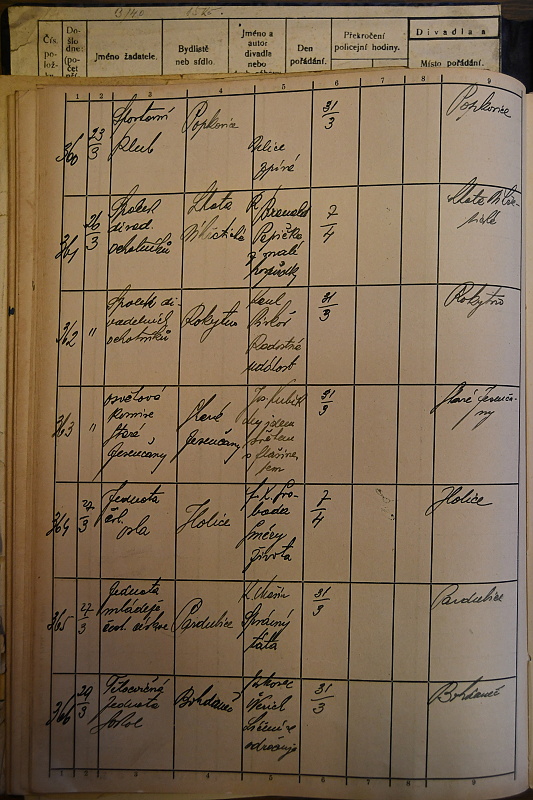 B/40
Čís.
po-
lož-
Do-
šlo
dne:
(po-
čet
Jméno žadatele.
Bydliště
neb sídlo.
Jméno a
autor
divadla
nebo
Den
pořádání.
Překročení
policejní hodiny.
Divadla a
Místo pořádání.
1 2 3 4 5 6 7 8 9
360 23/3 Sportovní klub Popkovice zpívá 31/3 Popkovice
361 26/3 Spolek divad. ochotníků Lhota Pepička z malé 7/4 Lhota
362 " Spolek divadelních ochotníků Rokytno Radostná událost 31/3 Rokytno
363 " osvětová komise Staré Jesenčany Staré Jesenčany Jos. Kubík My jdem světem s flašinetem 31/3 Staré Jesenčany
364 27/3 Jednota čsl. orla Holice F. X. Svoboda Směry života 7/4 Holice
365 27/3 Jednota mládeže čsl. církve Pardubice Správný táta 31/3 Pardubice
366 29/3 Tělocvičná jednota Sokol Bohdaneč Voskovec Werich 31/3 Bohdaneč
1 2 3 4 5 6 7 8 9